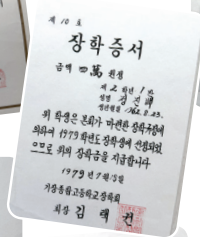 제 10 호
장학증서
금액 四萬 원정
제 2 학년 1 반
성명 강진
생년월일 1962. 8. 23.
위 학생은 본회가 마련한 장학규정에
의하여 1979학년도 장학생에 선정되었
으므로 위의 장학금을 지급합니다
1979년 9월 15일
기장종합고등학교장학회
회장 김택